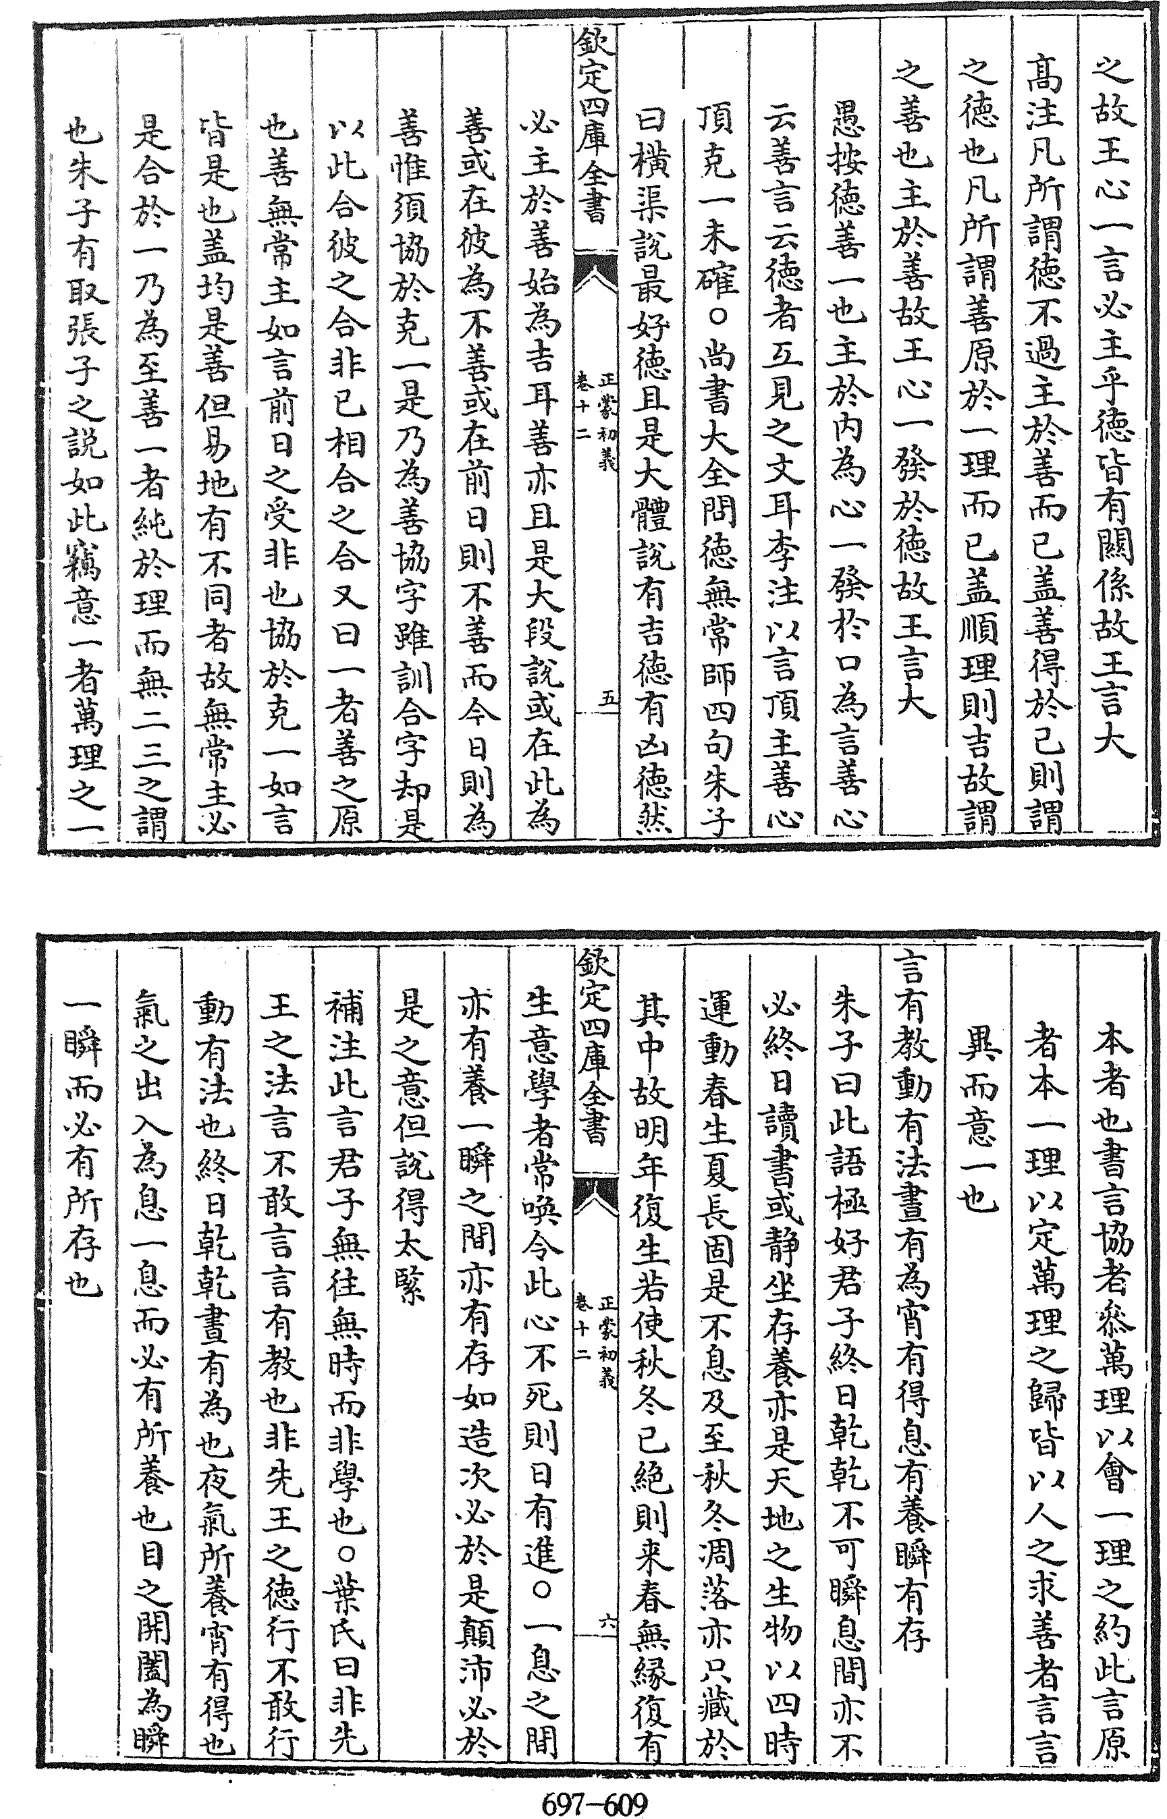 之故王心一言必主乎德皆有關係故王言大
髙注凡所謂德不過主於善而已盖善得於己則謂
之德也凡所謂善原於一理而已盖順理則吉故謂
之善也主於善故王心一發於德故王言大
愚按德善一也主於内為心一發於口為言善心
云善言云德者互見之文耳李注以言頂主善心
頂克一未確○尚書大全問德無常師四句朱子
曰橫渠說最好德且是大體說有吉德有凶德然
欽定四庫全書
正蒙初義
卷十二
五
必主於善始為吉耳善亦且是大段說或在此為
善或在彼為不善或在前日則不善而今日則為
善惟須協於克一是乃為善協字雖訓合字却是
以此合彼之合非已相合之合又曰一者善之原
也善無常主如言前日之受非也協於克一如言
皆是也盖均是善但易地有不同者故無常主必
是合於一乃為至善一者純於理而無二三之謂
也朱子有取張子之說如此竊意一者萬理之一
本者也書言協者叅萬理以會一理之約此言原
者本一理以定萬理之歸皆以人之求善者言言
異而意一也
言有教動有法晝有為宵有得息有養瞬有存
朱子曰此語極好君子終日乾乾不可瞬息間亦不
必終日讀書或静坐存養亦是天地之生物以四時
運動春生夏長固是不息及至秋冬凋落亦只藏於
其中故明年復生若使秋冬已絶則来春無縁復有
欽定四庫全書
正蒙初義
卷十二
六
生意學者常喚令此心不死則日有進○一息之間
亦有養一瞬之間亦有存如造次必於是顛沛必於
是之意但說得太緊
補注此言君子無往無時而非學也○葉氏曰非先
王之法言不敢言言有教也非先王之德行不敢行
動有法也終日乾乾晝有為也夜氣所養宵有得也
氣之出入為息一息而必有所養也目之開闔為瞬
一瞬而必有所存也
697-609